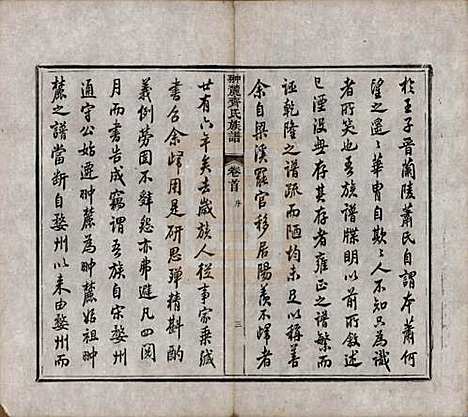 於王子晉蘭陵蕭氏自謂本蕭何
望之遥遥華胄自欺欺人不知爲識
者所笑也吾族譜牒明以前所敘述
已湮沒毋存其存者雍正之譜繁而
誣乾隆之譜疏而陋均未足以稱善
余自梁溪罷官移居陽羡不歸者
翀麓齊氏族譜
卷首
序
三
廿有六年矣去歲族人從事家乘緘
書召余歸用是研思殫精斟酌
義例勞固不辭怨亦弗避凡四閱
月而書告成竊謂吾族自宋婺州
通守公始遷翀麓爲翀麓始祖翀
麓之譜當斷自婺州以來由婺州而